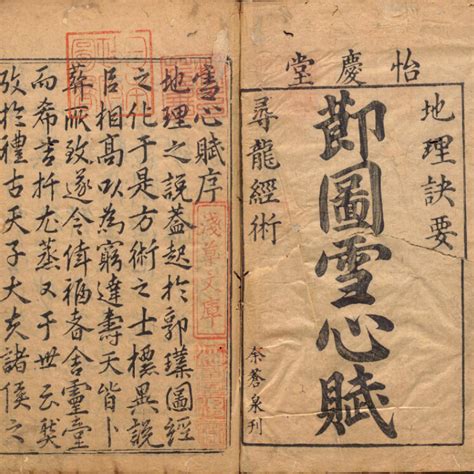 怡慶堂
地理訣要
莭圖雪心賦
尋龍經術
余蒼泉刊
雪心賦序
地理之說蓋起於郭璞圖經
之化于是方術之士標異說
相高以為窮達壽夭皆卜
葬所致遂令倖福者舍靈堂
而希吉又于世云
攷於禮古天子大夫諸侯之
淺草文庫